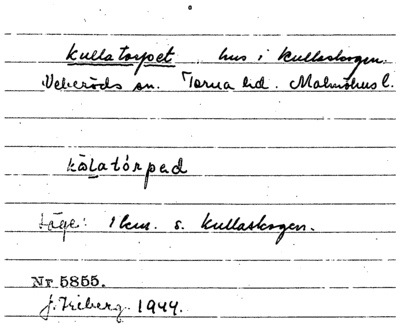 Kullatorpet hus i Kullaskogen.
Veberöds sn. Torna hd. Malmöhus l.
kålatórpad
Läge: 1 km. s. Kullaskogen.
Nr 5855.
J. Friberg 1944.